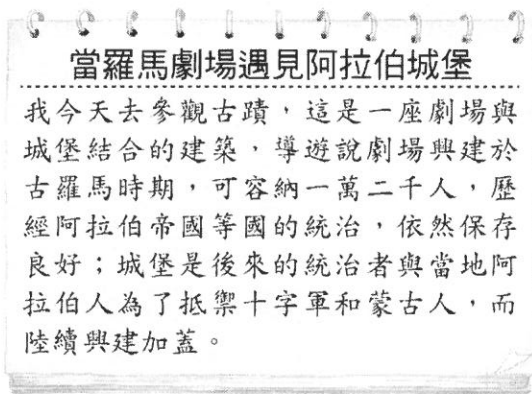 當羅馬劇場遇見阿拉伯城堡
我今天去參觀古蹟，這是一座劇場與
城堡結合的建築，導遊說劇場興建於
古羅馬時期，可容納一萬二千人，歷
經阿拉伯帝國等國的統治，依然保存
良好；城堡是後來的統治者與當地阿
拉伯人為了抵禦十字軍和蒙古人，而
陸續興建加蓋。